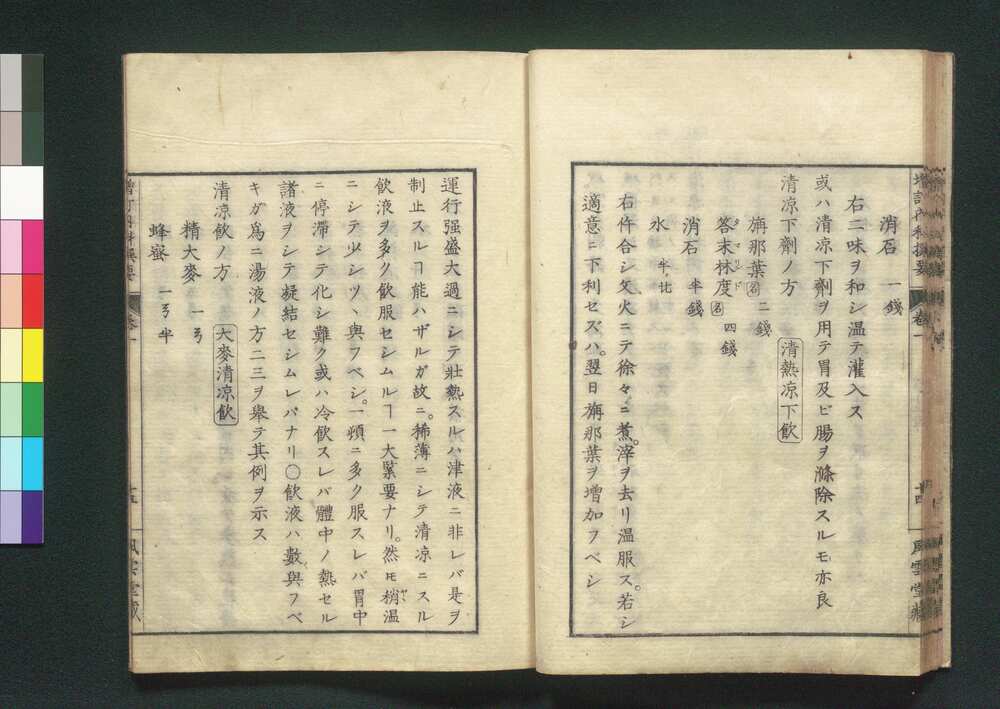 消石 一錢
右二味ヲ和シ温テ灌入ス
或ハ清凉下劑ヲ用テ胃及ビ腸ヲ滌除スルモ亦良
清凉下劑ノ方 清熱凉下飲
旃那葉 名 二錢
答末林度 名 四錢
タマリンド
消石 半錢
水 半比
右件合シ文火ニテ徐々ニ煮。滓ヲ去リ温服ス。若シ
適意ニ下利セズハ。翌日旃那葉ヲ增加フベシ
增訂內科撰要 卷一 十四 風雲堂藏
運行强盛大過ニシテ壯熱スルハ津液ニ非レバ是ヲ
制止スルヿ能ハザルガ故ニ。稀薄ニシテ清凉ニスル
飲液ヲ多ク飲服セシムルヿ一大緊要ナリ。然ㇳモ稍温
ニシテ少シツヽ與フベシ。一頓ニ多ク服スレバ胃中
ニ停滯シテ化シ難ク或ハ冷飲スレバ體中ノ熱セル
諸液ヲシテ凝結セシムレバナリ〇飲液ハ數與フベ
キガ爲ニ湯液ノ方二三ヲ舉テ其例ヲ示ス
清凉飲ノ方 大麥清凉飲
精大麥 一ヲ
蜂蜜 一ヲ半
增訂內科撰要 卷一 十五 風雲堂藏